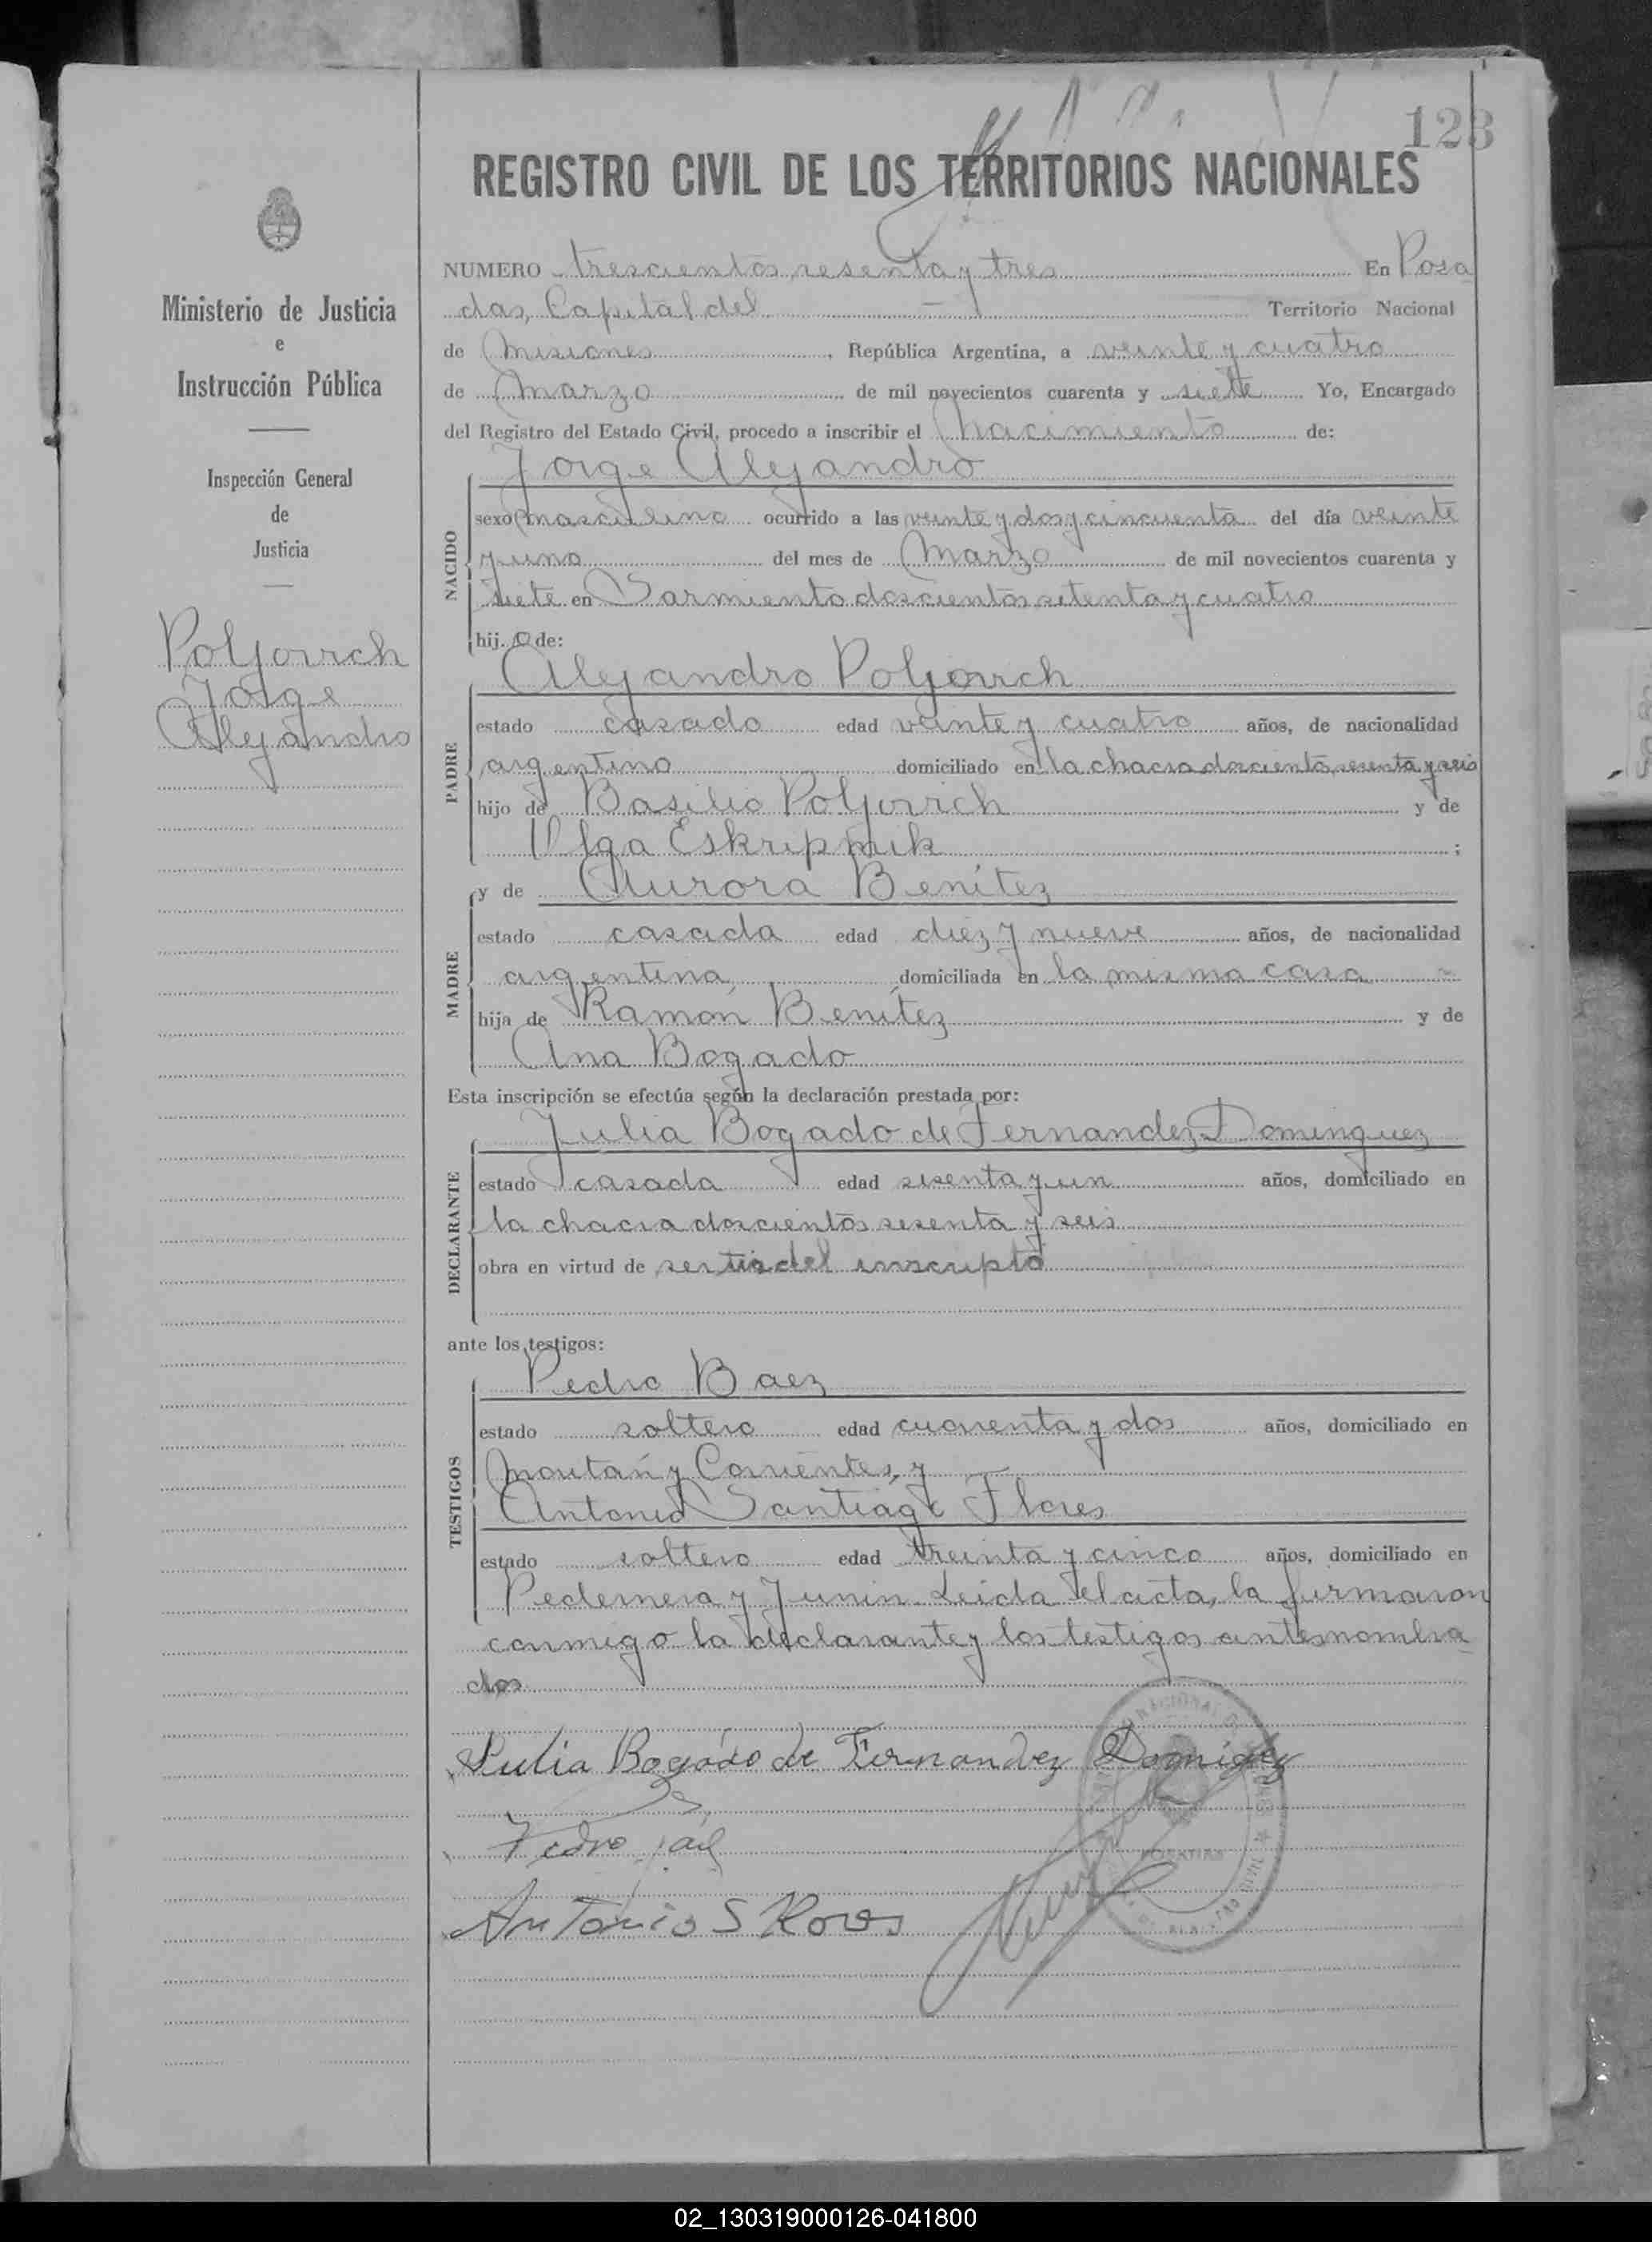 123
REGISTRO CIVIL DE LOS TERRITORIOS NACIONALES
Ministerio de Justicia
e
Instrucción Pública
Inspección General
de
Justicia
Poljovich
Jorge
Alejandro
NUMERO trescientos sesenta y tres En Posa
das, Capital del — Territorio Nacional
de Misiones, República Argentina, a veinte y cuatro
de Marzo de mil novecientos cuarenta y siete Yo, Encargado
del Registro del Estado Civil, procedo a inscribir el nacimiento de:
NACIDO
Jorge Alejandro
sexo masculino ocurrido a las veinte y dos y cincuenta del día veinte
y uno del mes de Marzo de mil novecientos cuarenta y
siete en Sarmiento doscientos setenta y cuatro
hijo de:
PADRE
Alejandro Poljovich
estado casado edad veinte y cuatro años, de nacionalidad
argentino domiciliado en la chacra doscientos sesenta y seis
hijo de Basilio Poljovich y de
Olga Eskripnik;
MADRE
y de Aurora Benítez
estado casada edad diez y nueve años, de nacionalidad
argentina, domiciliada en la misma casa
hija de Ramón Benítez y de
Ana Bogado
Esta inscripción se efectúa según la declaración prestada por:
DECLARANTE
Julia Bogado de Fernandez Dominguez
estado casada edad sesenta y un años, domiciliado en
la chacra doscientos sesenta y seis
obra en virtud de ser tia del inscripto
ante los testigos:
TESTIGOS
Pedro Baez
estado soltero edad cuarenta y dos años, domiciliado en
y Corrientes, y
Antonio Santiago Flores
estado soltero edad treinta y cinco años, domiciliado en
Pedernera y Junin. Leida el acta, la firmaron
conmigo la declarante y los testigos antes nombra
dos
Julia Bogado de Fernandez
Pedro
Antonio S
02_130319000126-041800